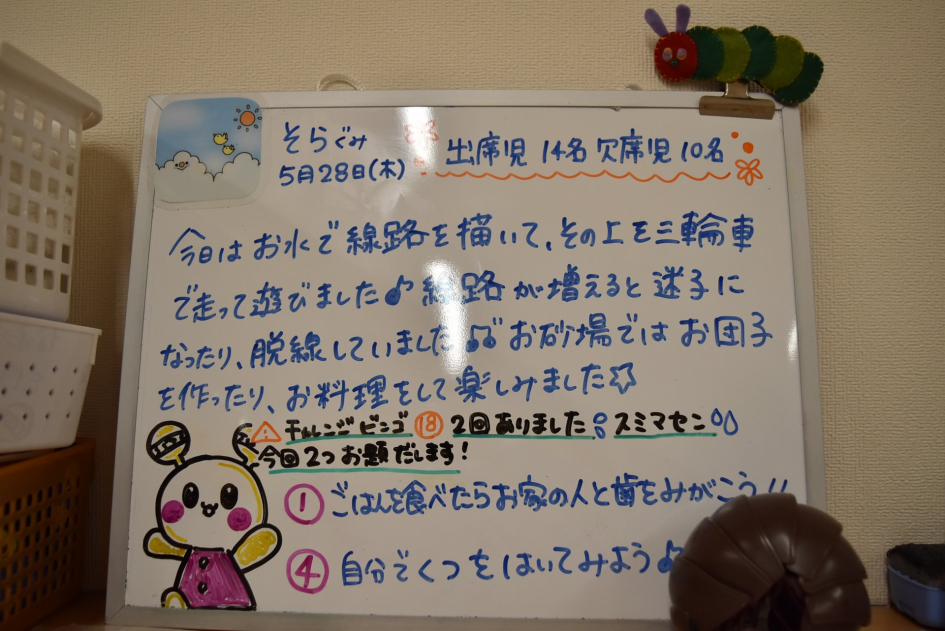 そらぐみ
5月28日(木)
出席児 14名 欠席児 10名
今日はお水で線路を描いて、その上を三輪車
で走って遊びました♪ 線路が増えると迷子に
なったり、脱線していました♫ お砂場ではお団子
を作ったり、お料理をして楽しみました☆
チャレンジビンゴ ⑱ 2回ありました スミマセン
今回2つお題だします!
① ごはんを食べたらお家の人と歯をみがこう!!
④ 自分でくつをはいてみよう♪